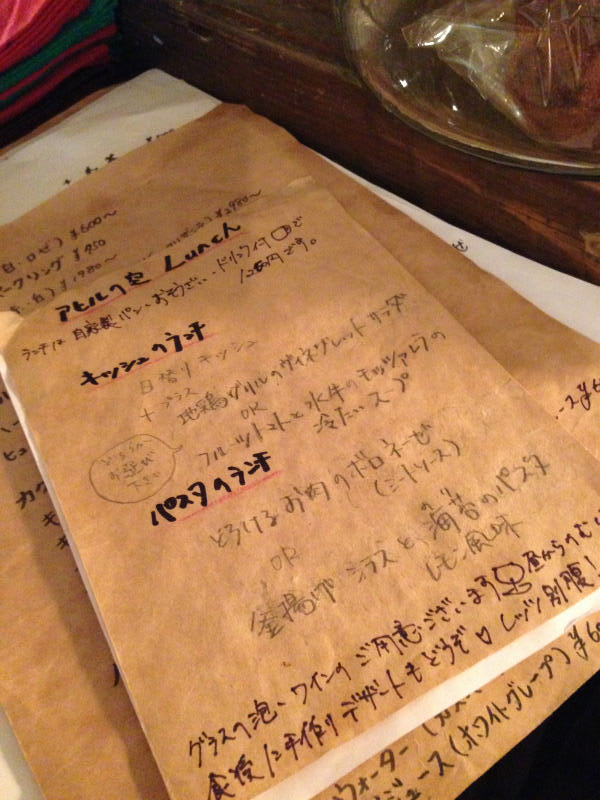 白・ロゼ) ¥600〜
ークリング ¥950
・白) ¥1,980〜
¥2,980〜
アヒルの家 Lunch
ランチは 自家製パン・おそうざい・ドリンク付で
です。
キッシュのランチ
日替りキッシュ
+ プラス
地鶏グリルのヴィネグレットサラダ
OR
フルーツトマトと水牛のモッツァレラの
冷たいスープ
どちらか
お選び
下さい
パスタのランチ
とろけるお肉のボロネーゼ
(ミートソース)
OR
釜揚げシラスと、海苔のパスタ
レモン風味
グラスの泡・ワインのご用意ございます 昼からのむ
食後に手作りデザートもどうぞ♡ レッツ別腹!
ウォーター (
ジュース(ホワイトグレープ) ¥6